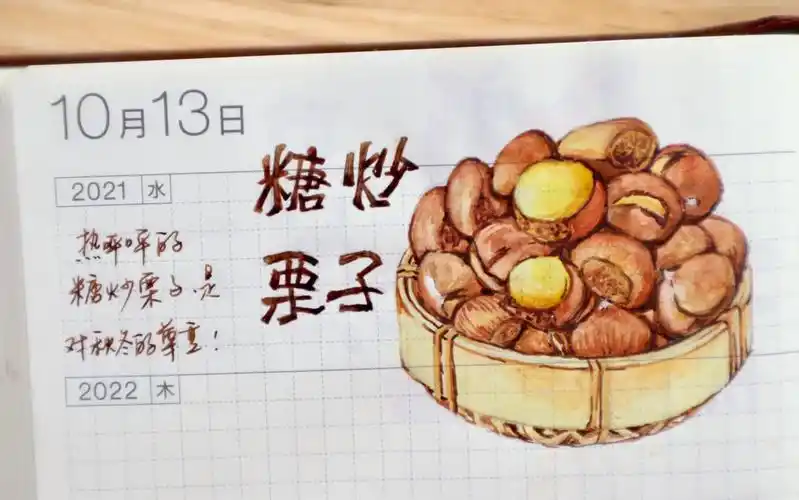 10月13日
2021 水
糖炒
栗子
热乎乎的
糖炒栗子是
对秋冬的尊重!
2022 木